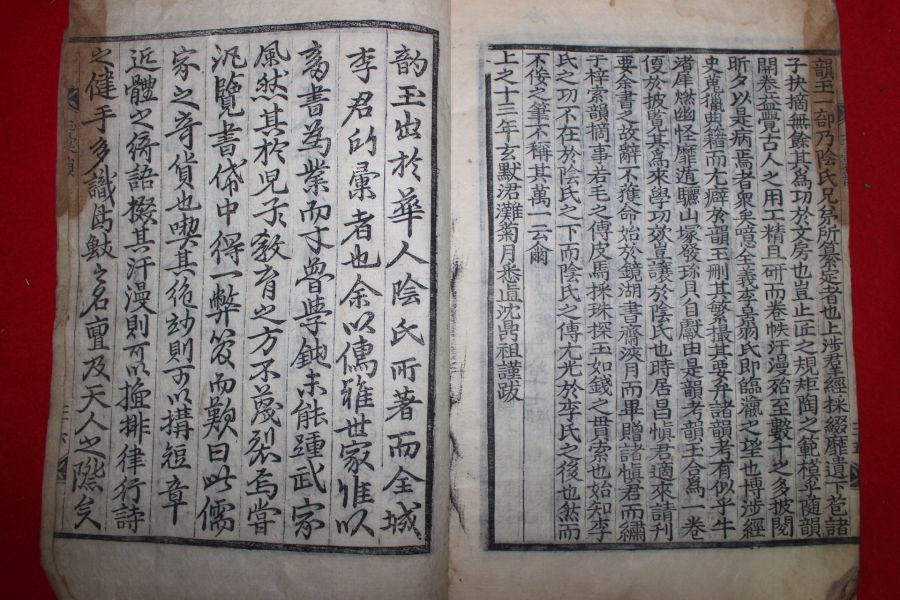 韻玉一郤乃陰氏兄弟所纂定者也上涉羣經採綴靡遺下芭諸
子抉摘無餘其爲功於文房也豈止匠之規矩陶之範模乎随韻
開卷益覺古人之用工精且研而卷帙汗漫殆至數十之多披閱
昕夕以是病焉者衆矣噫全義李臯弼氏即臨瀛之望也博涉經
史蒐獵典籍而尤癖於韻玉刪其繁撮其要弁諸韻考有似乎牛
渚犀燃幽怪靡遁驪山塚發珎貝自獻由是韻考韻玉合爲一卷
便於披覽其爲來學功效豈讓於陰氏也時居昌愼君適來請刊
要余書之故辭不獲命始於鏡湖書齋浹月而畢贈諸愼君而繡
子梓索韻摘事若毛之傅皮馬採珠探玉如錢之貫索也始知李
氏之功不在於陰氏之下而陰氏之傳尤光於李氏之後也然而
不佞之筆不稱其萬一云爾
上之十三年玄默涒灘菊月直沈祖謹跋
韵玉出於華人陰氏所著而全城
李君的彙者也余以儒雅世家惟以
畜書為業而才魯學鈍未能踵武家
風然其於児子教育之方不篾裂焉甞
汎覽書帒中得一弊笈而歎曰此儒
家之竒貨也喫其絶妙則可以搆短章
近體之绮語掇其汗漫則可以擅排律行詩
之健手多識鳥獸之名亶及天人之際矣